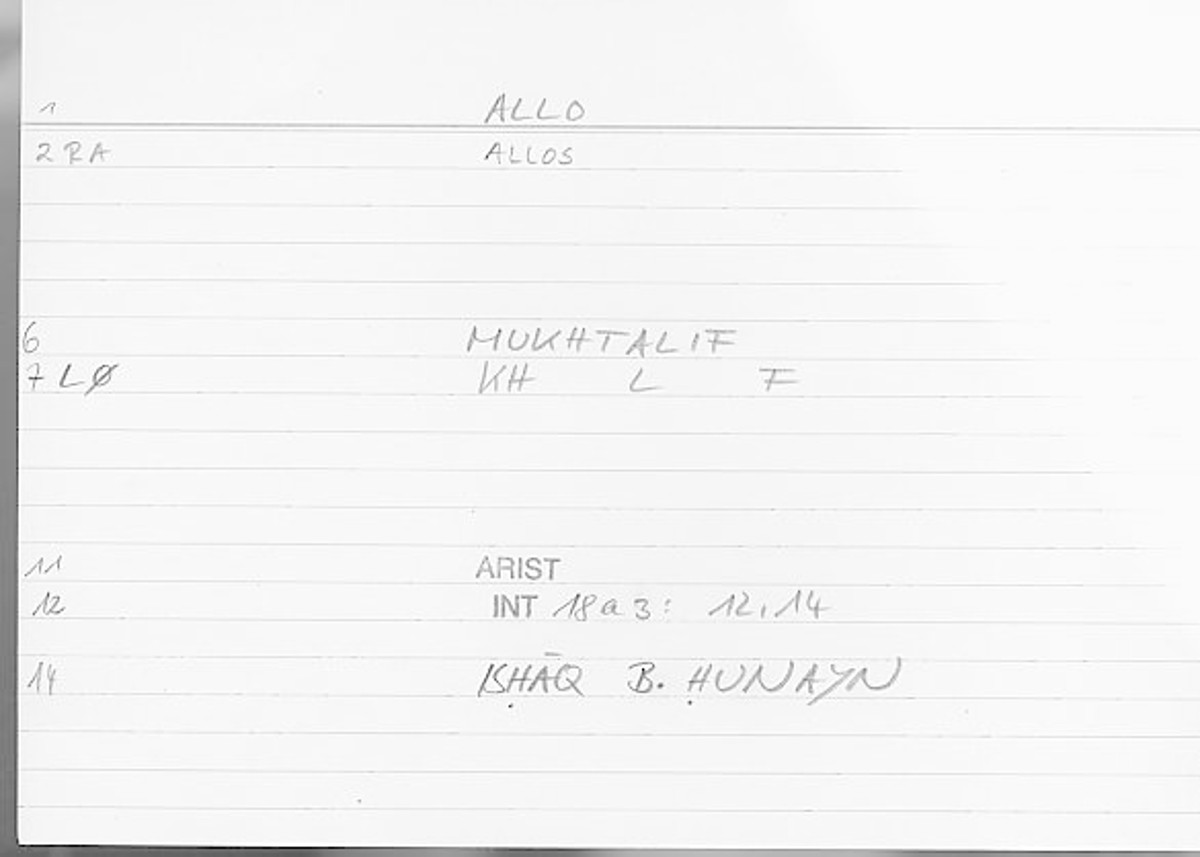 1 ALLO
2 RA ALLOS
6 MUKHTALIF
7 LØ KH L F
11 ARIST
12 INT 18 a 3: 12,14
14 ISḤĀQ B. ḤUNAYN